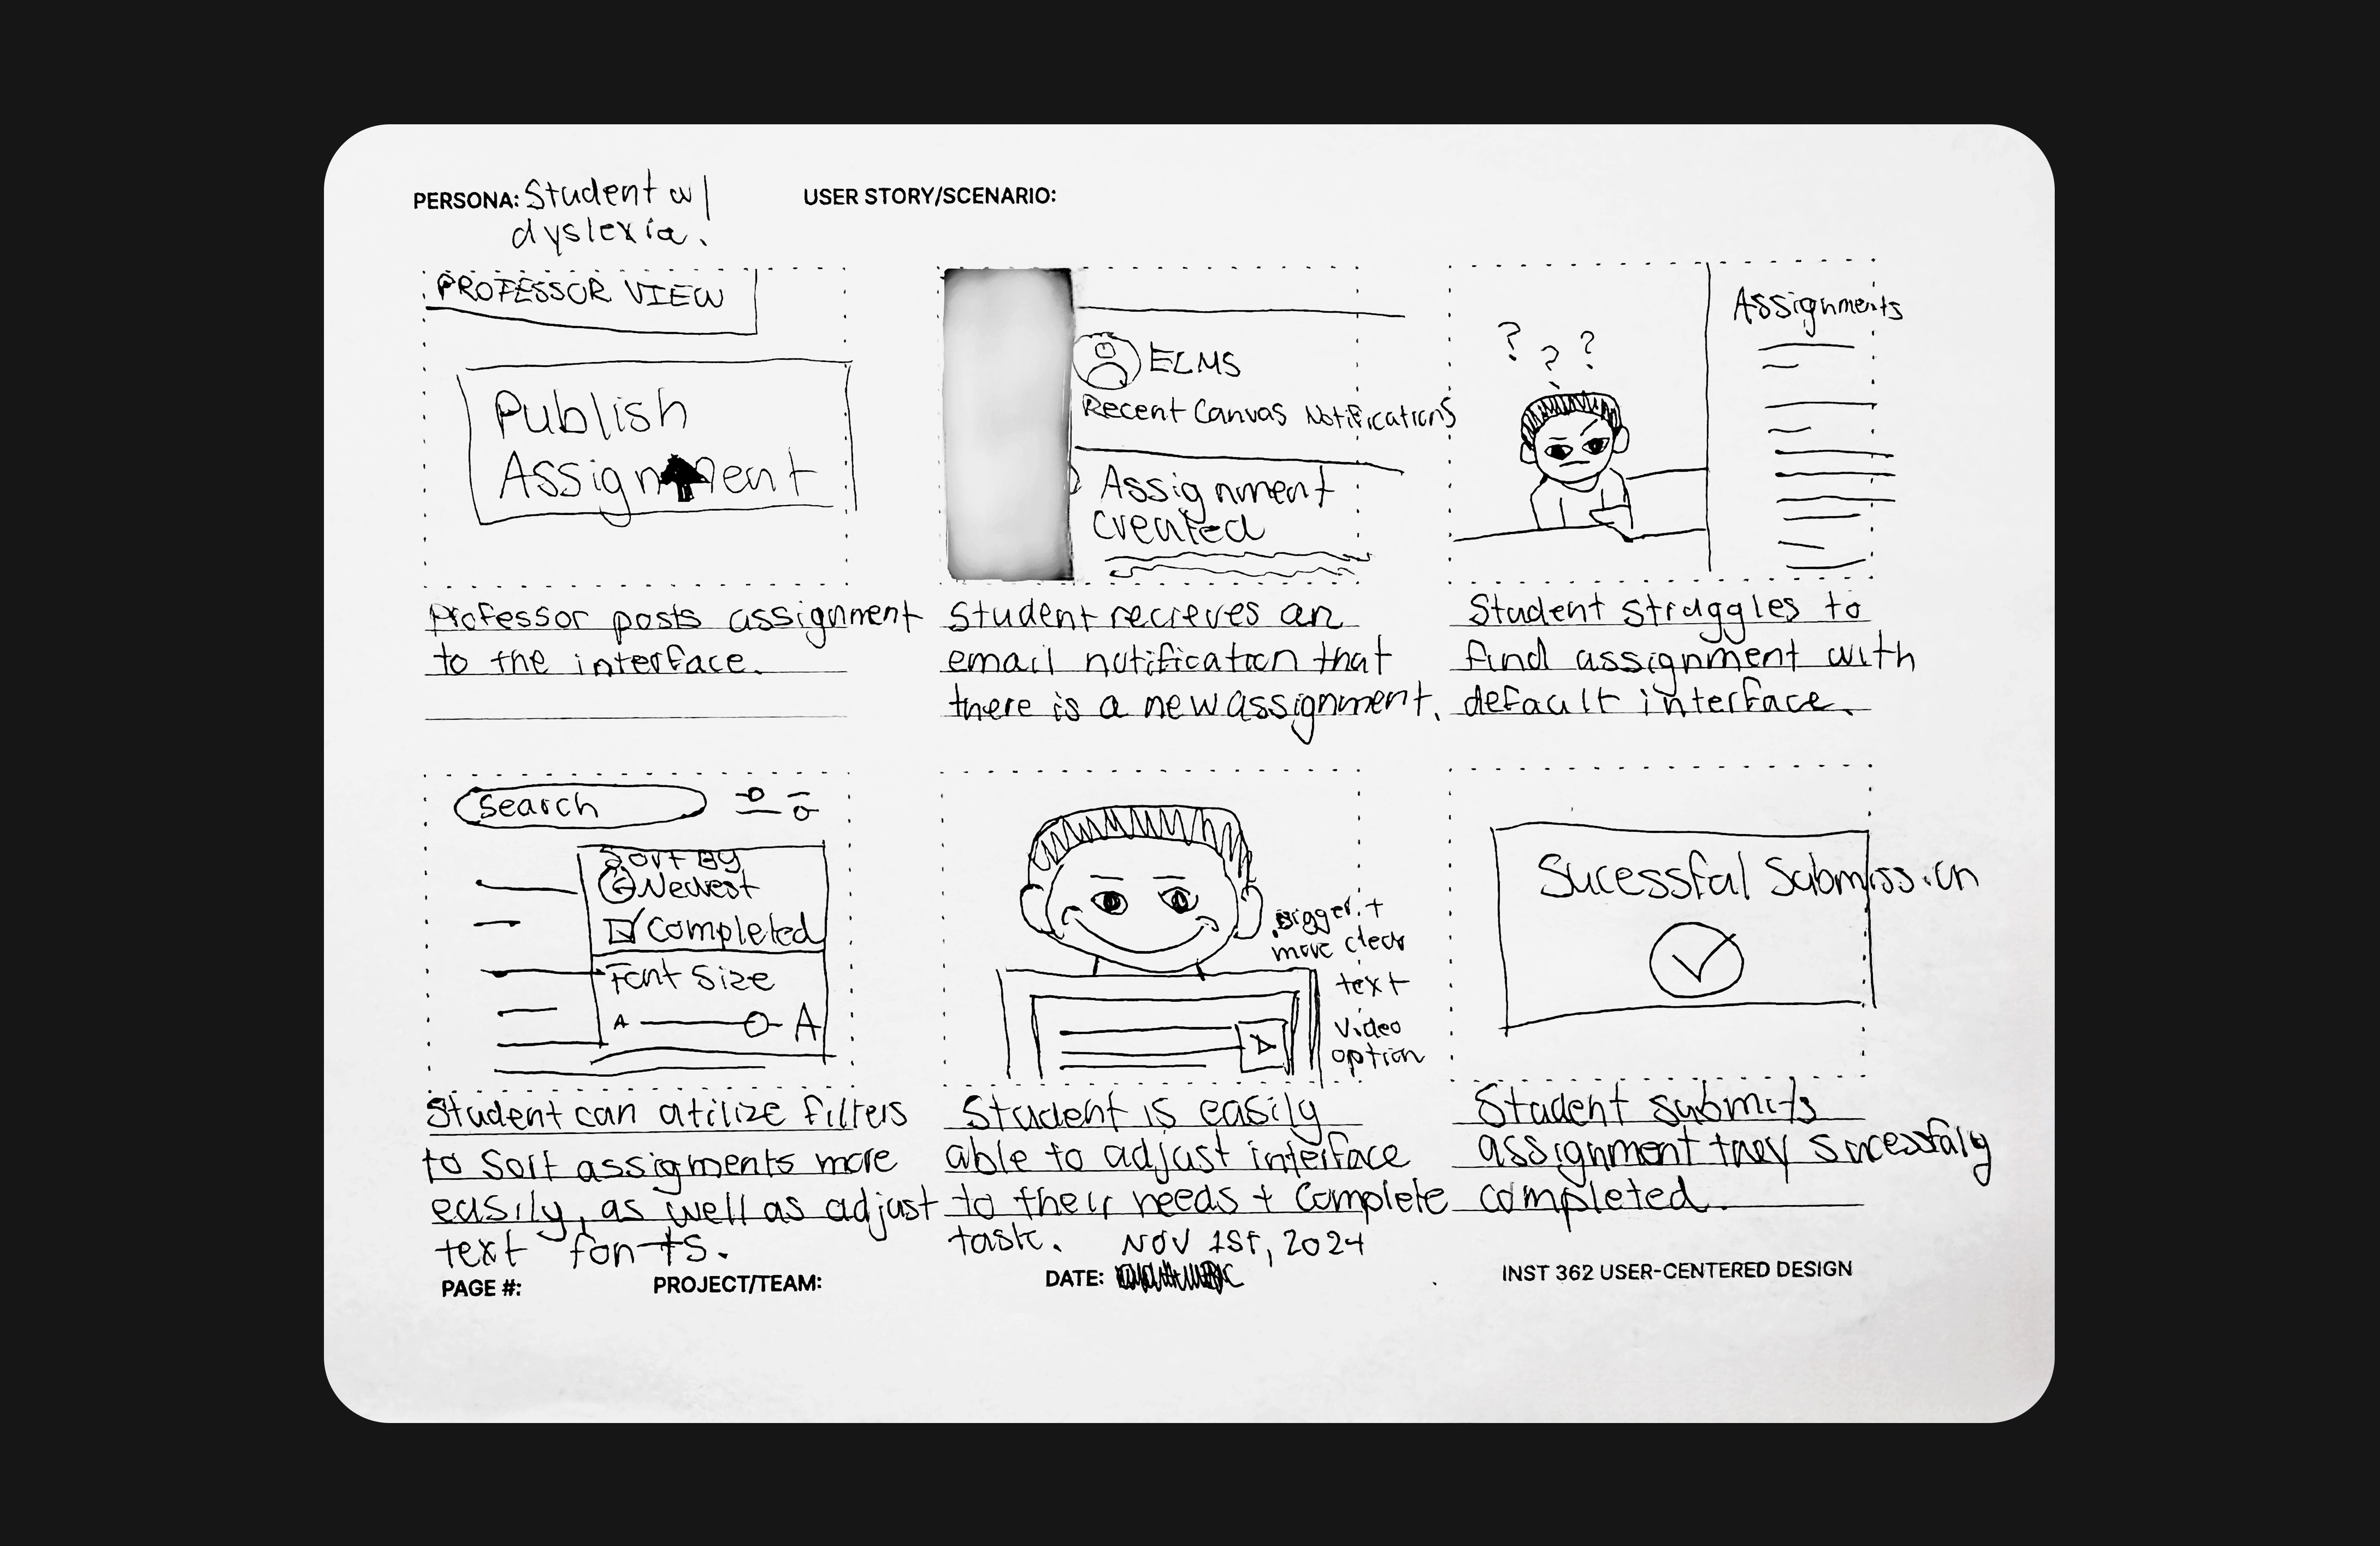 PERSONA: Student w/
dyslexia.
USER STORY/SCENARIO:
PROFESSOR VIEW
Publish
Assignment
Professor posts assignment
to the interface.
ELMS
Recent Canvas Notifications
Assignment
created
Student recieves an
email notification that
there is a new assignment.
? ? ?
Assignments
Student struggles to
find assignment with
default interface.
Search
Sort By
Newest
Completed
Font Size
A A
Student can utilize filters
to sort assigments more
easily, as well as adjust
text fonts.
Bigger +
more clear
text
video
option
Student is easily
able to adjust interface
to their needs + complete
task.
Sucessful Submission
Student submits
assignment they sucessfuly
completed.
PAGE #:
PROJECT/TEAM:
NOV 1st, 2024
DATE:
INST 362 USER-CENTERED DESIGN